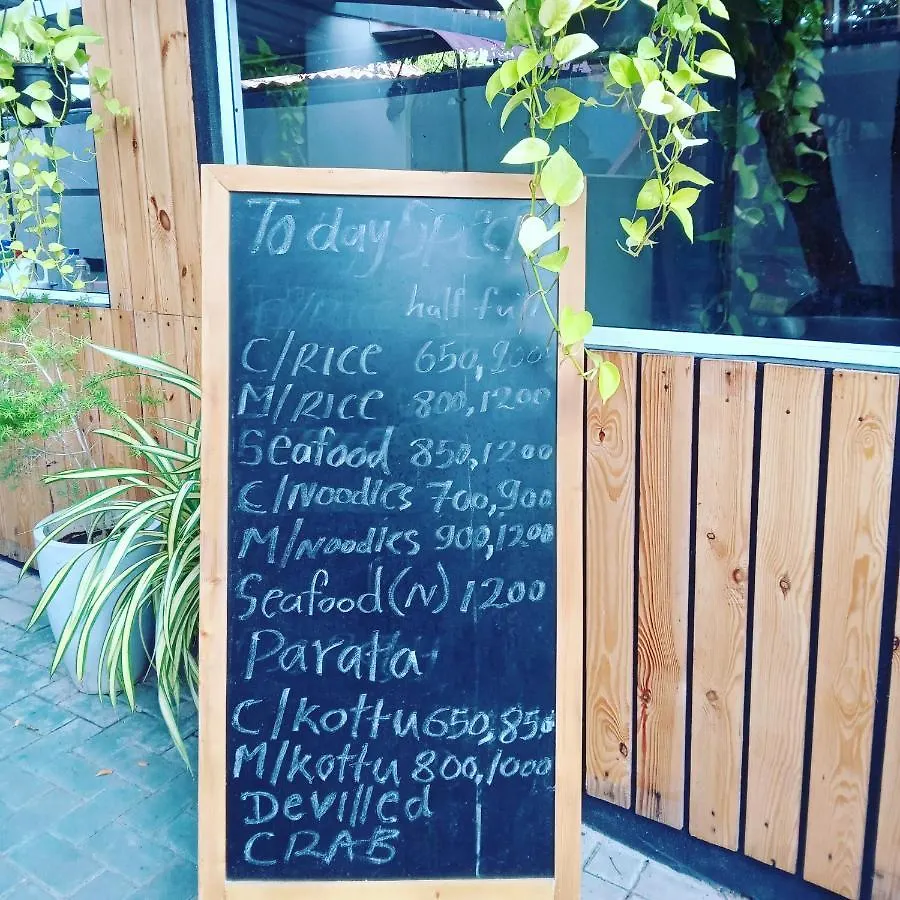 To day Spec
half full
C/RICE 650,900
M/RICE 800,1200
Seafood 850,1200
C/Noodles 700,900
M/Noodles 900,1200
Seafood(N) 1200
Parata
C/kottu 650,850
M/kottu 800,1000
Devilled
CRAB